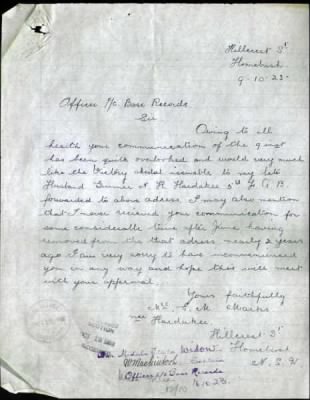 Hillcrest St
Homebush
9-10-23
Officer I/c Base Records
Sir
Owing to ill
health your communication of the 9 inst
has been quite overlooked and would very much
like the Victory Medal issuable to my late
Husband Gunner N. R. Hardaker 5th F A B
forwarded to above adress. I may also mention
that I never received your communication for
some considerable time after June having
removed from the that adress nearly 2 years
ago I am very sorry to have inconvenienced
you in any way and hope this will meet
with your approval.
Yours faithfully
Mrs E. M. Marks
nee Hardaker
Hillcrest St
Widow Homebush
N. S. W
Officer i/c Base Records
16.10.23.